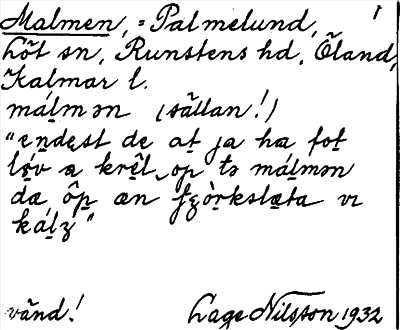 Malmen, = Palmelund, 1
Löt sn, Runstens hd, Öland,
Kalmar l.
málmən (sällan!)
"endest de at ja ha fot
lǫ́v æ krêl op tə málmən
dæ ôp æn fʒòrkslæta vɩ
kálʒ"
vänd! Lage Nilsson 1932